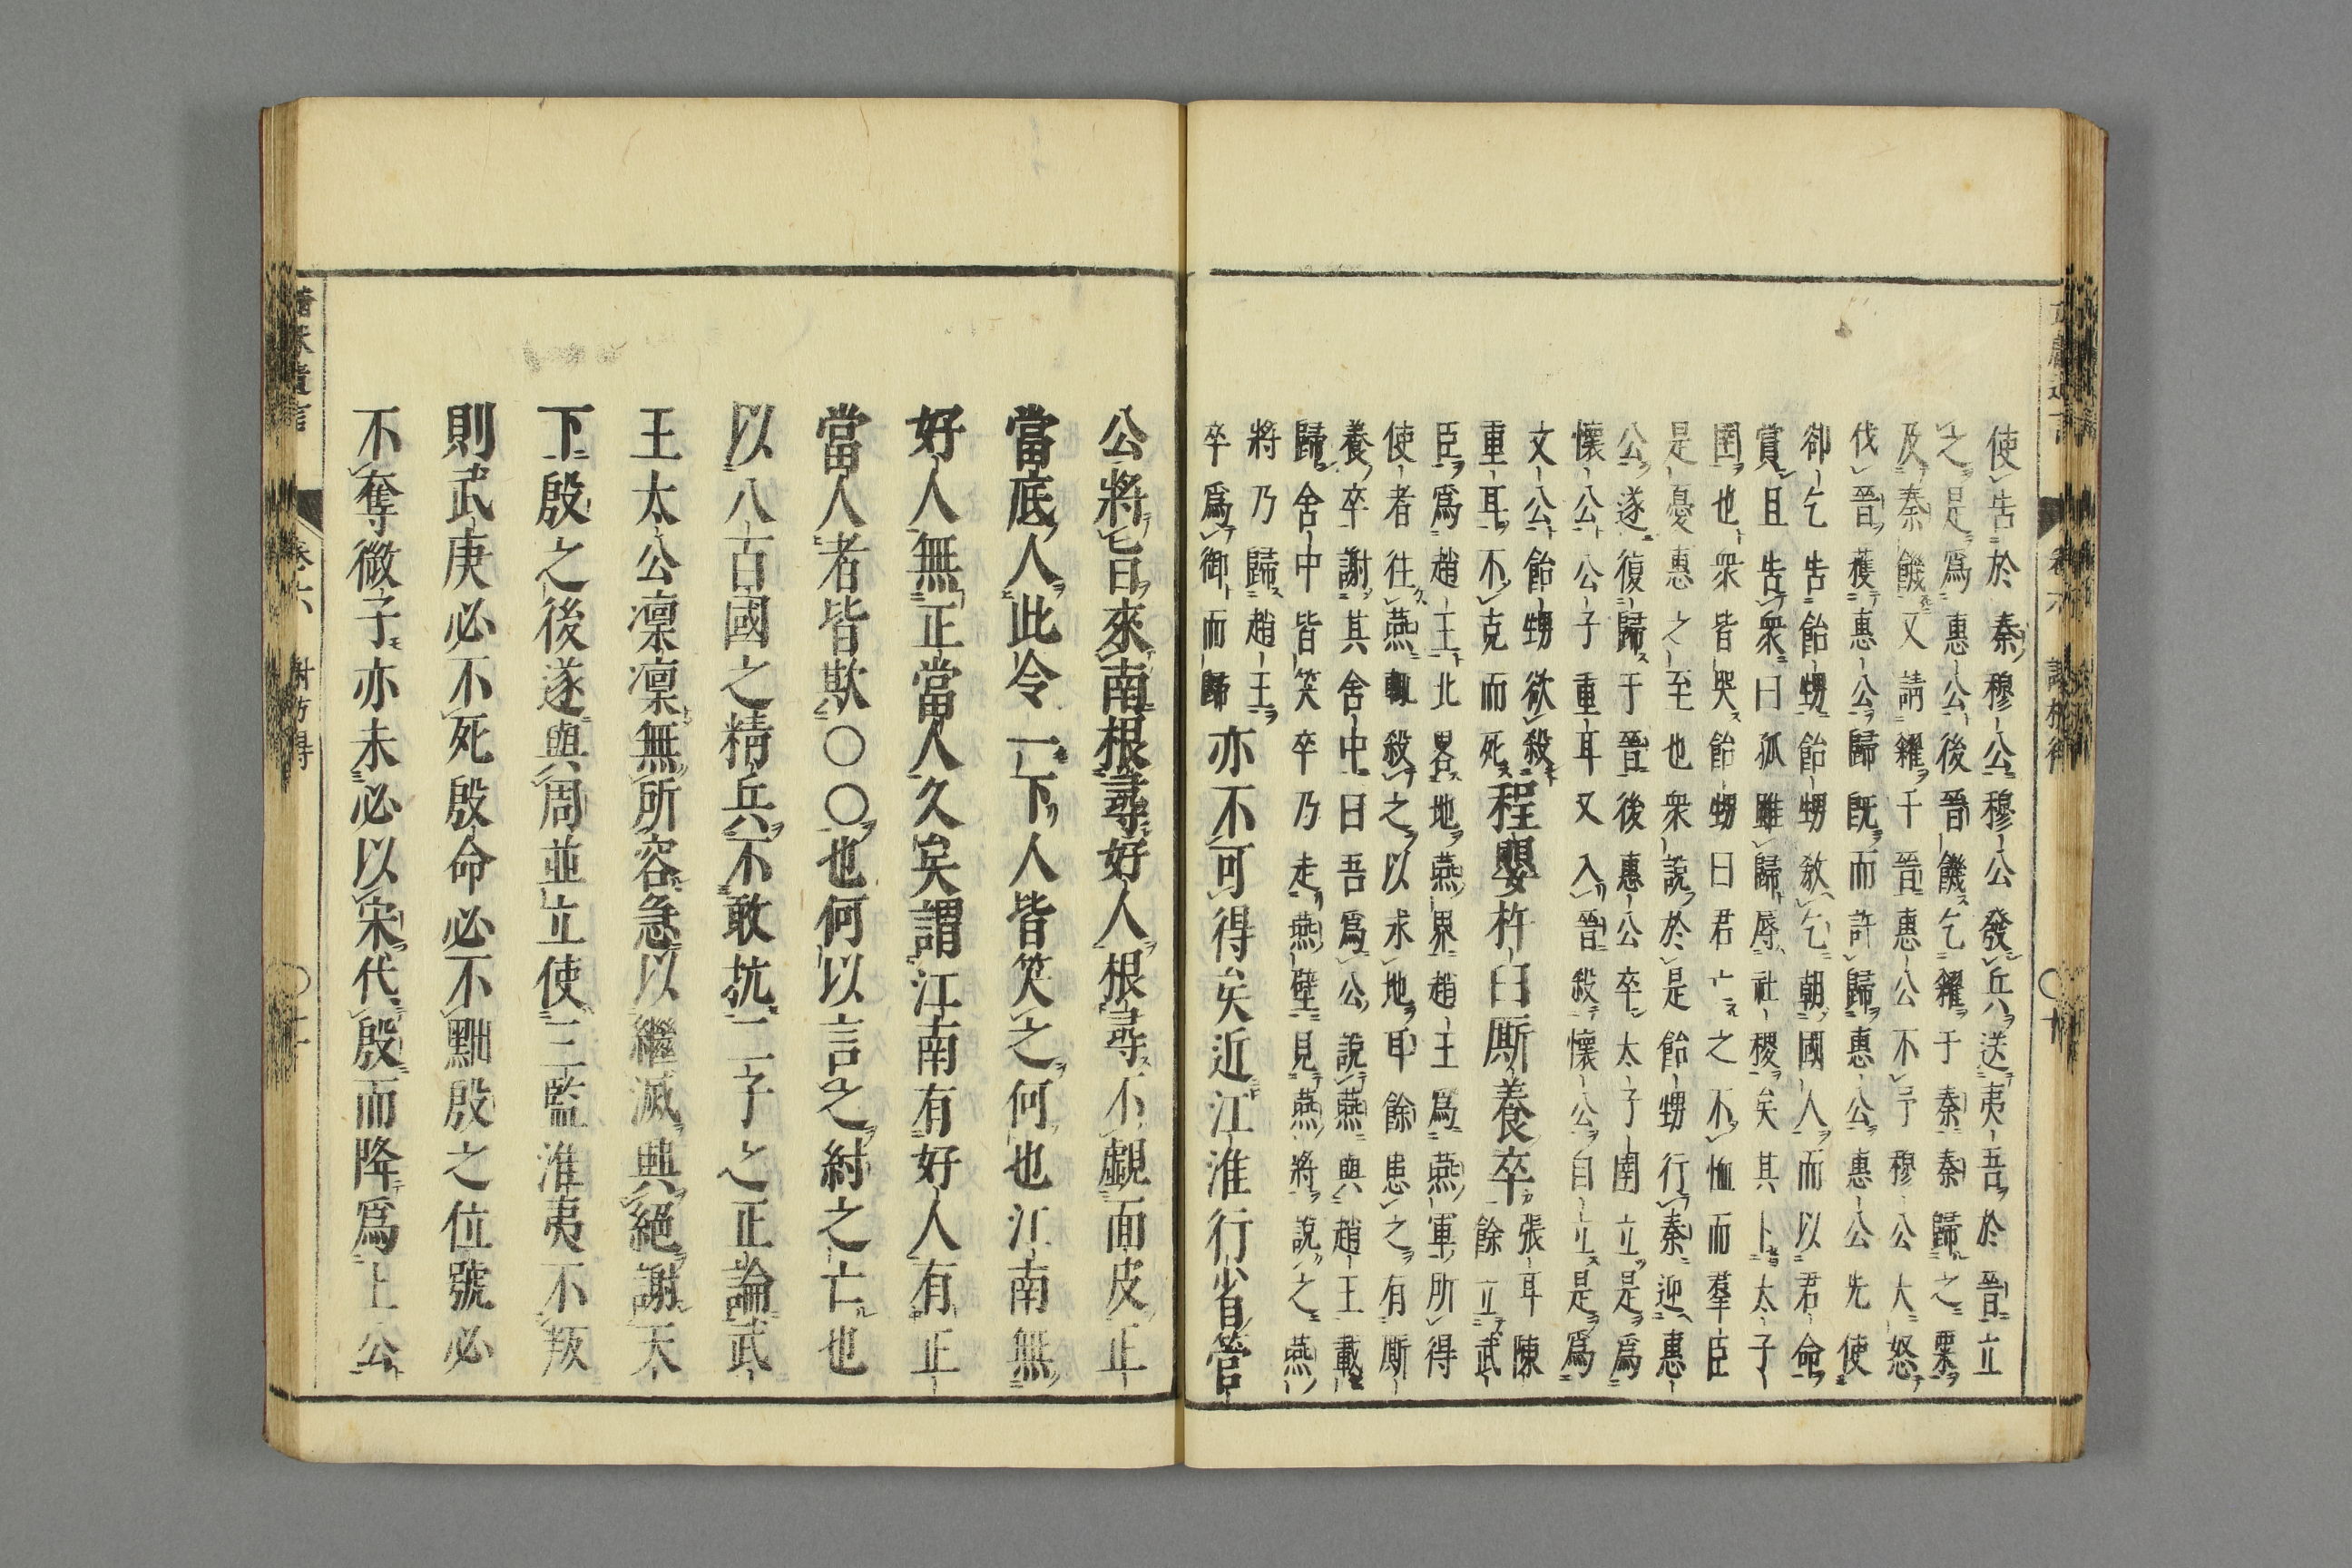 使告於秦穆公穆公發兵送夷吾於晉立
之是爲惠公後晉饑乞糴于秦秦歸之粟
及秦饑又請糴于晉惠公不予穆公大怒
伐晉獲惠公歸既而許歸惠公惠公先使
郤乞告飴甥飴甥敎乞朝國人而以君命
賞且告衆曰孤雖歸辱社稷矣其卜太子
圉也衆皆哭飴甥曰君亡之不恤而羣臣
是憂惠之至也衆說於是飴甥行秦迎惠
公遂復歸于晉後惠公卒太子圉立是爲
懷公公子重耳又入晉殺懷公自立是爲
文公飴甥欲殺
重耳不克而死
程嬰杵臼厮養卒
張耳陳
餘立武
臣爲趙王北畧地燕界趙王爲燕軍所得
使者往燕輒殺之以求地耳餘患之有厮
養卒謝其舍中曰吾爲公說燕與趙王載
歸舍中皆笑卒乃走燕壁見燕將說之燕
將乃歸趙王
卒爲御而歸
亦不可得矣近江淮行省管
公將旨來南根尋好人根尋不覷面皮正
當底人此令一下人皆笑之何也江南無
好人無正當人久矣謂江南有好人有正
當人者皆欺○○也何以言之紂之亡也
以八百國之精兵不敢抗二子之正論武
王太公凜凜無所容急以繼滅興絕謝天
下殷之後遂與周並立使三監淮夷不叛
則武庚必不死殷命必不黜殷之位號必
不奪微子亦未必以宋代殷而降爲上公
卷六
謝枋得